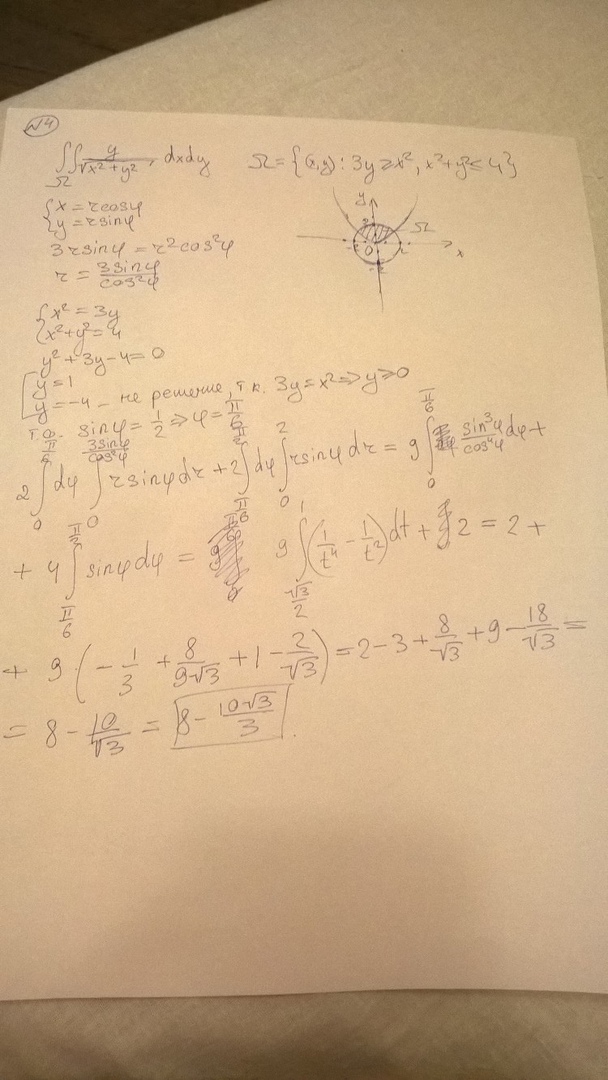 №4
∬_Ω y/√(x²+y²) dxdy Ω = {(x,y): 3y ≥ x², x²+y² ≤ 4}
{ x = r cos φ
{ y = r sin φ
3r sin φ = r² cos² φ
r = 3 sin φ / cos² φ
y Ω x 0
{ x² = 3y
{ x² + y² = 4
y² + 3y - 4 = 0
[ y = 1
[ y = -4 - не решение, т.к. 3y = x² ⇒ y ≥ 0
т.о. sin φ = 1/2 ⇒ φ = π/6
2 ∫_0^{π/6} dφ ∫_0^{3 sin φ / cos² φ} r sin φ dr + 2 ∫_{π/6}^{π/2} dφ ∫_0^2 r sin φ dr = 9 ∫_0^{π/6} sin³φ / cos⁴φ dφ +
+ 4 ∫_{π/6}^{π/2} sin φ dφ = 9 ∫_{√3/2}^1 (1/t⁴ - 1/t²) dt + 2 = 2 +
+ 9 ( - 1/3 + 8/(9√3) + 1 - 2/√3 ) = 2 - 3 + 8/√3 + 9 - 18/√3 =
= 8 - 10/√3 = 8 - 10√3/3 .